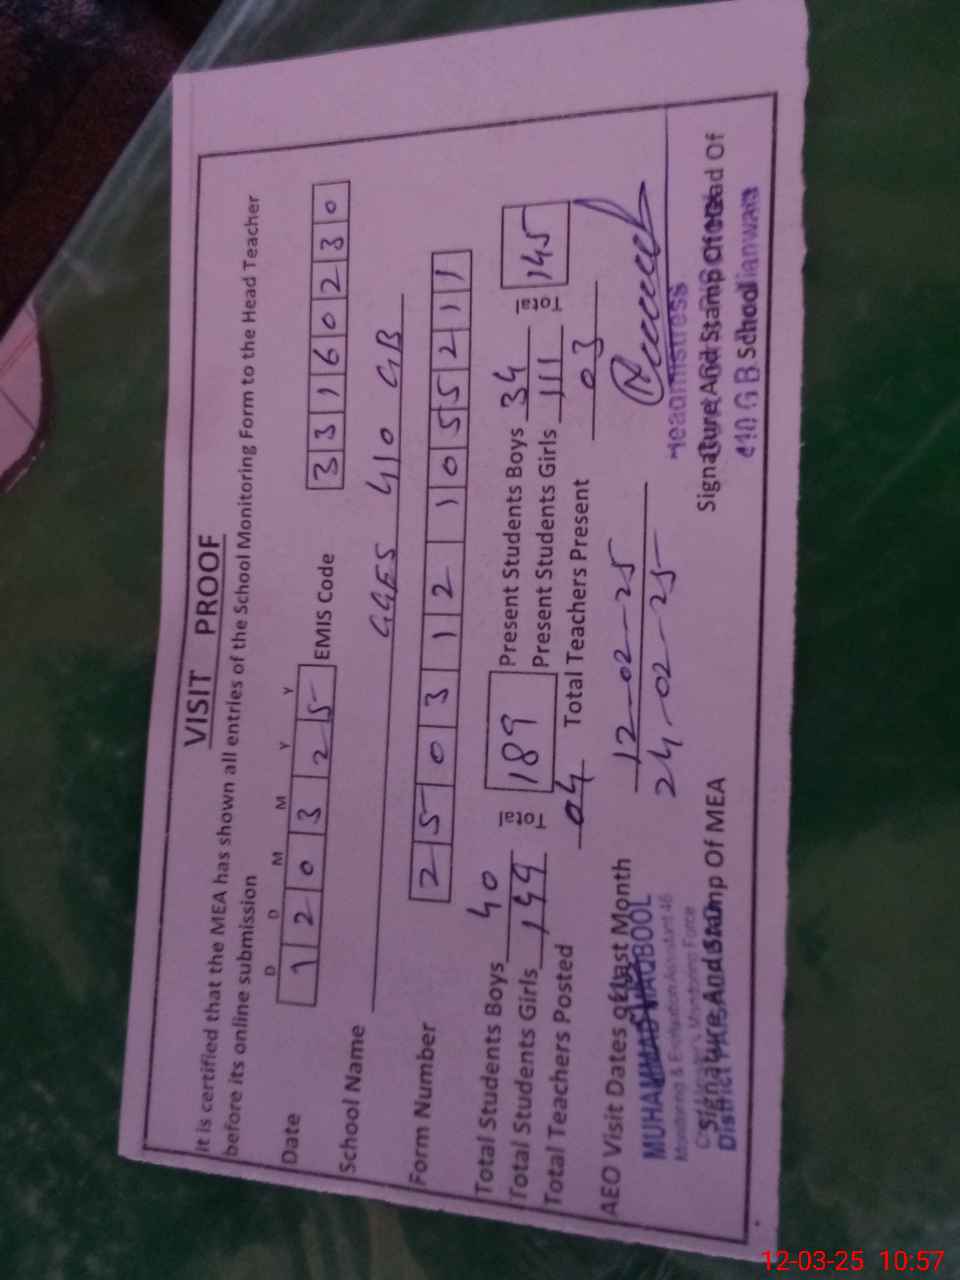 VISIT PROOF
It is certified that the MEA has shown all entries of the School Monitoring Form to the Head Teacher
before its online submission
D D M M Y Y
Date 1 2 0 3 2 5 EMIS Code 3 3 1 6 0 2 3 0
School Name GGES 410 GB
Form Number 2 5 0 3 1 2 1 0 5 5 2 1 1
Total Students Boys 40 Total 189 Present Students Boys 34 Total 145
Total Students Girls 149 Present Students Girls 111
Total Teachers Posted 04 Total Teachers Present 03
AEO Visit Dates of Last Month 12-02-25
24-02-25
MUHAMMAD MAQBOOL Headmistress
Monitoring & Evaluation Assistant 46
Chief Minister's Monitoring Force
Signature And Stamp Of MEA Signature And Stamp Of Head Of
School
410 G B
12-03-25 10:57